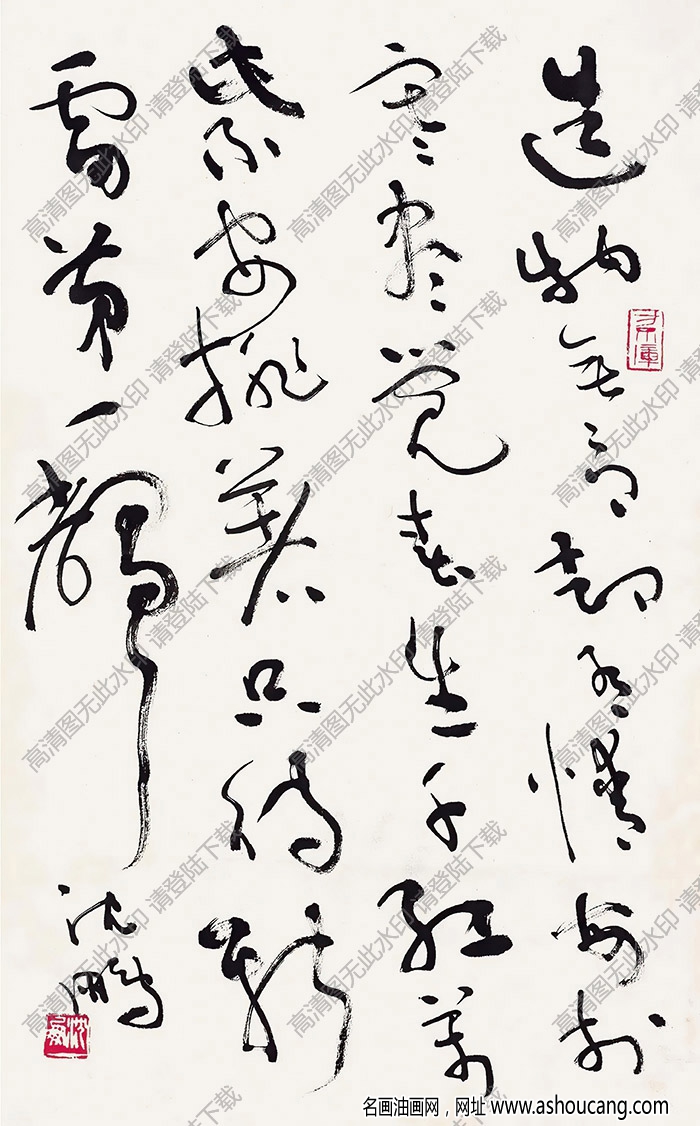 造物無言却有情每於
寒盡覺春生千紅萬
紫安排著只待新
雷第一聲
沈鵬
高清图无此水印 请登陆下载
名画油画网，网址 www.ashoucang.com